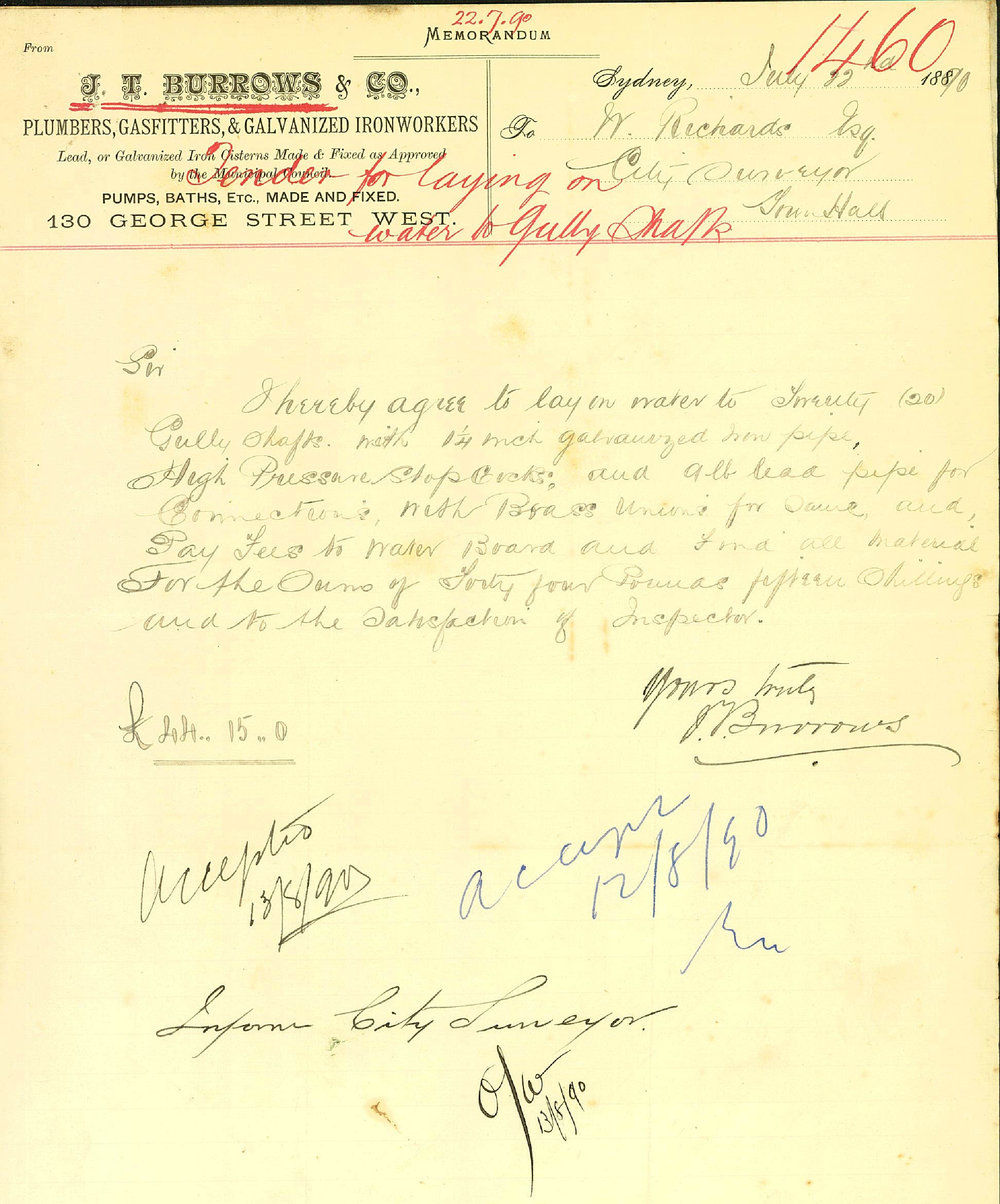 22.7.90
MEMORANDUM
1460
From
J. T. BURROWS & CO.,
PLUMBERS, GASFITTERS, & GALVANIZED IRONWORKERS
Lead, or Galvanized Iron Cisterns Made & Fixed as Approved
by the Municipal Council.
PUMPS, BATHS, ETC., MADE AND FIXED.
130 GEORGE STREET WEST.
Sydney, July 22nd 1890
To W. Richards Esq.
City Surveyor
Town Hall
Tender for laying on
water to Gully Shafts
Sir
I hereby agree to lay on water to Twenty (20)
Gully Shafts. with 1¼ inch galvanized Iron pipe,
High Pressure Stop Cocks, and 9lb lead pipe for
Connections, with Brass Unions for Same, and,
Pay Fees to Water Board and Find all Material
For the Sum of Forty four Pounds fifteen Shillings
and to the Satisfaction of Inspector.
Yours truly
J.T. Burrows
£44.. 15.. 0
Accepted
13/8/90
accept
12/8/90
Inform City Surveyor.
13/8/90